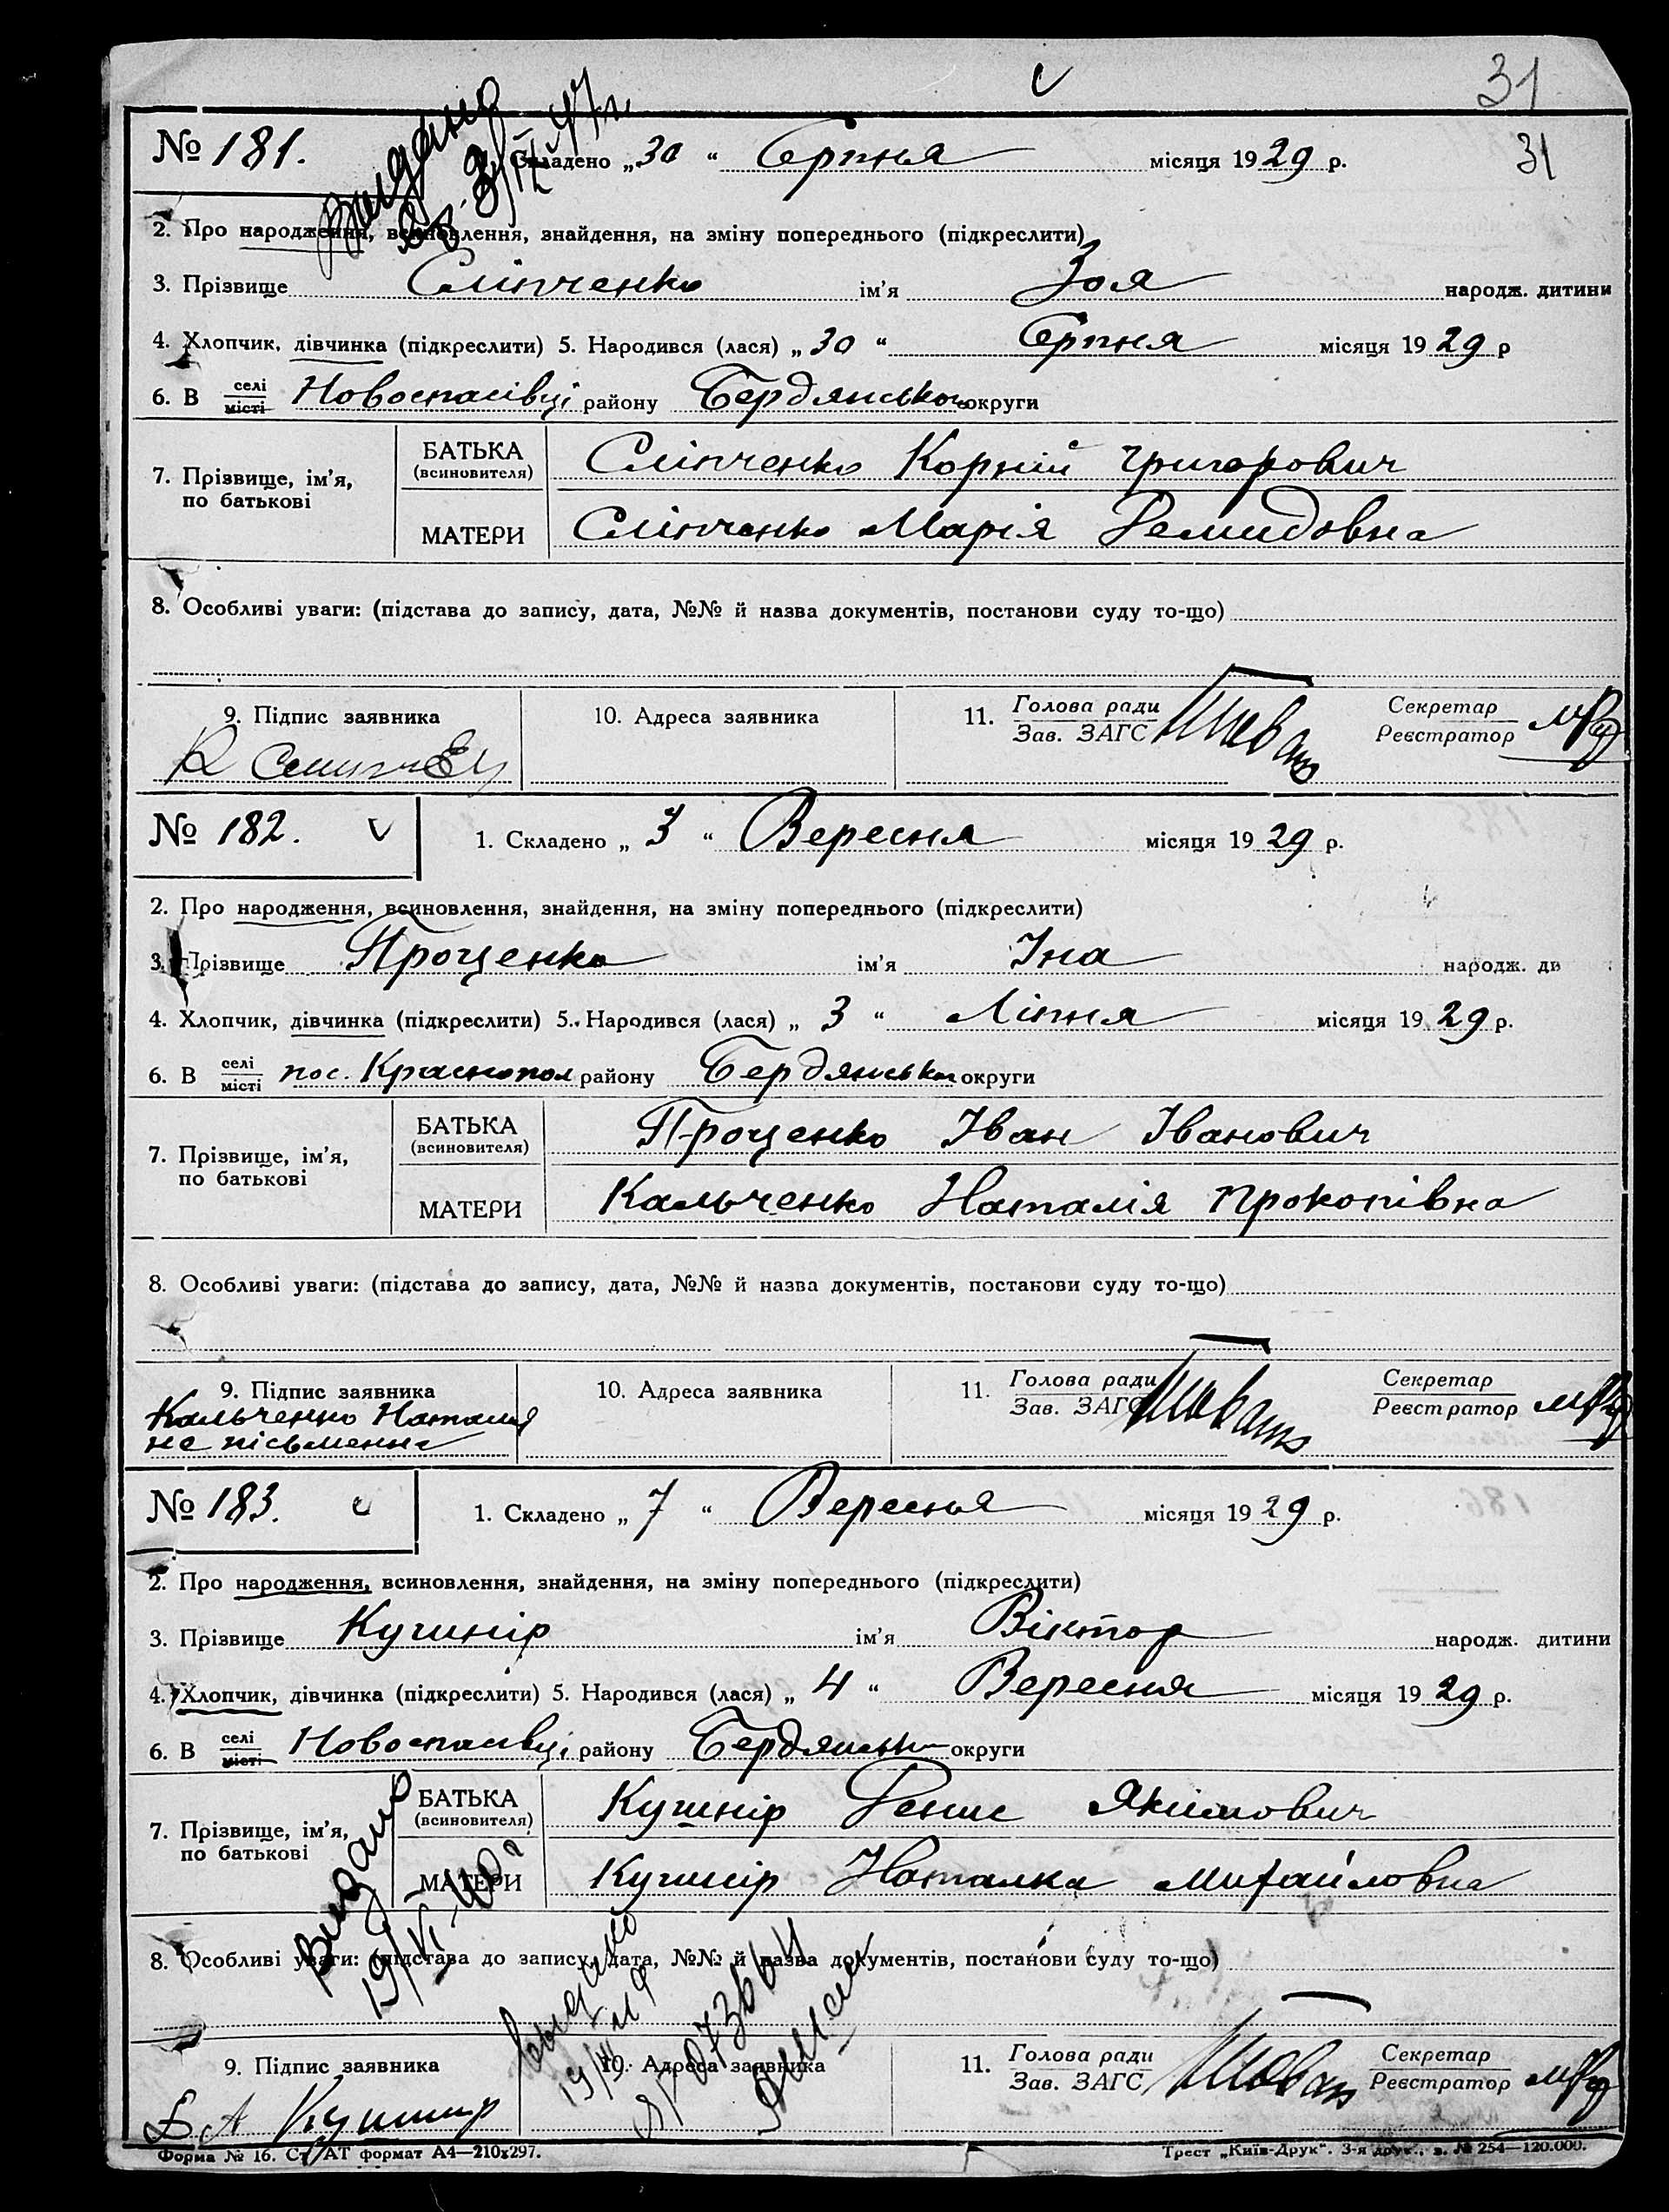 31
№ 181. Складено „ 30 “ Серпня місяця 1929 р. 31
Видано
2. Про народження, всиновлення, знайдення, на зміну попереднього (підкреслити)
3. Прізвище Сліпченко ім’я Зоя народж. дитини
4. Хлопчик, дівчинка (підкреслити) 5. Народився (лася) „ 30 “ Серпня місяця 1929 р
6. В селі місті Новоспасівці району Бердянського округи
7. Прізвище, ім’я, по батькові
БАТЬКА (всиновителя) Сліпченко Корній Григорович
МАТЕРИ Сліпченко Марія Демидовна
8. Особливі уваги: (підстава до запису, дата, №№ й назва документів, постанови суду то-що)
9. Підпис заявника 10. Адреса заявника 11. Голова ради Зав. ЗАГС Секретар Реєстратор
№ 182. 1. Складено „ 3 “ Вересня місяця 1929 р.
2. Про народження, всиновлення, знайдення, на зміну попереднього (підкреслити)
3. Прізвище Проценко ім’я Іна народж. ди
4. Хлопчик, дівчинка (підкреслити) 5. Народився (лася) „ 3 “ Ліпня місяця 1929 р.
6. В селі місті пос. Краснопол району Бердянського округи
7. Прізвище, ім’я, по батькові
БАТЬКА (всиновителя) Проценко Іван Іванович
МАТЕРИ Кальченко Наталія Прокопівна
8. Особливі уваги: (підстава до запису, дата, №№ й назва документів, постанови суду то-що)
9. Підпис заявника 10. Адреса заявника 11. Голова ради Зав. ЗАГС Секретар Реєстратор
Кальченко Наталія
не пісьменна
№ 183. 1. Складено „ 7 “ Вересня місяця 1929 р.
2. Про народження, всиновлення, знайдення, на зміну попереднього (підкреслити)
3. Прізвище Кушнір ім’я Віктор народж. дитини
4. Хлопчик, дівчинка (підкреслити) 5. Народився (лася) „ 4 “ Вересня місяця 1929 р.
6. В селі місті Новоспасівці району Бердянсько округи
7. Прізвище, ім’я, по батькові
БАТЬКА (всиновителя) Кушнір Денис Якимович
МАТЕРИ Кушнір Наталка Михайловна
Видано
19/VI-40 г
8. Особливі уваги: (підстава до запису, дата, №№ й назва документів, постанови суду то-що)
9. Підпис заявника 10. Адреса заявника 11. Голова ради Зав. ЗАГС Секретар Реєстратор
Д А Кушнир
Форма № 16. Ст. АТ формат А4—210x297. Трест „Київ-Друк“. 3-я друк., з. № 254—120.000.